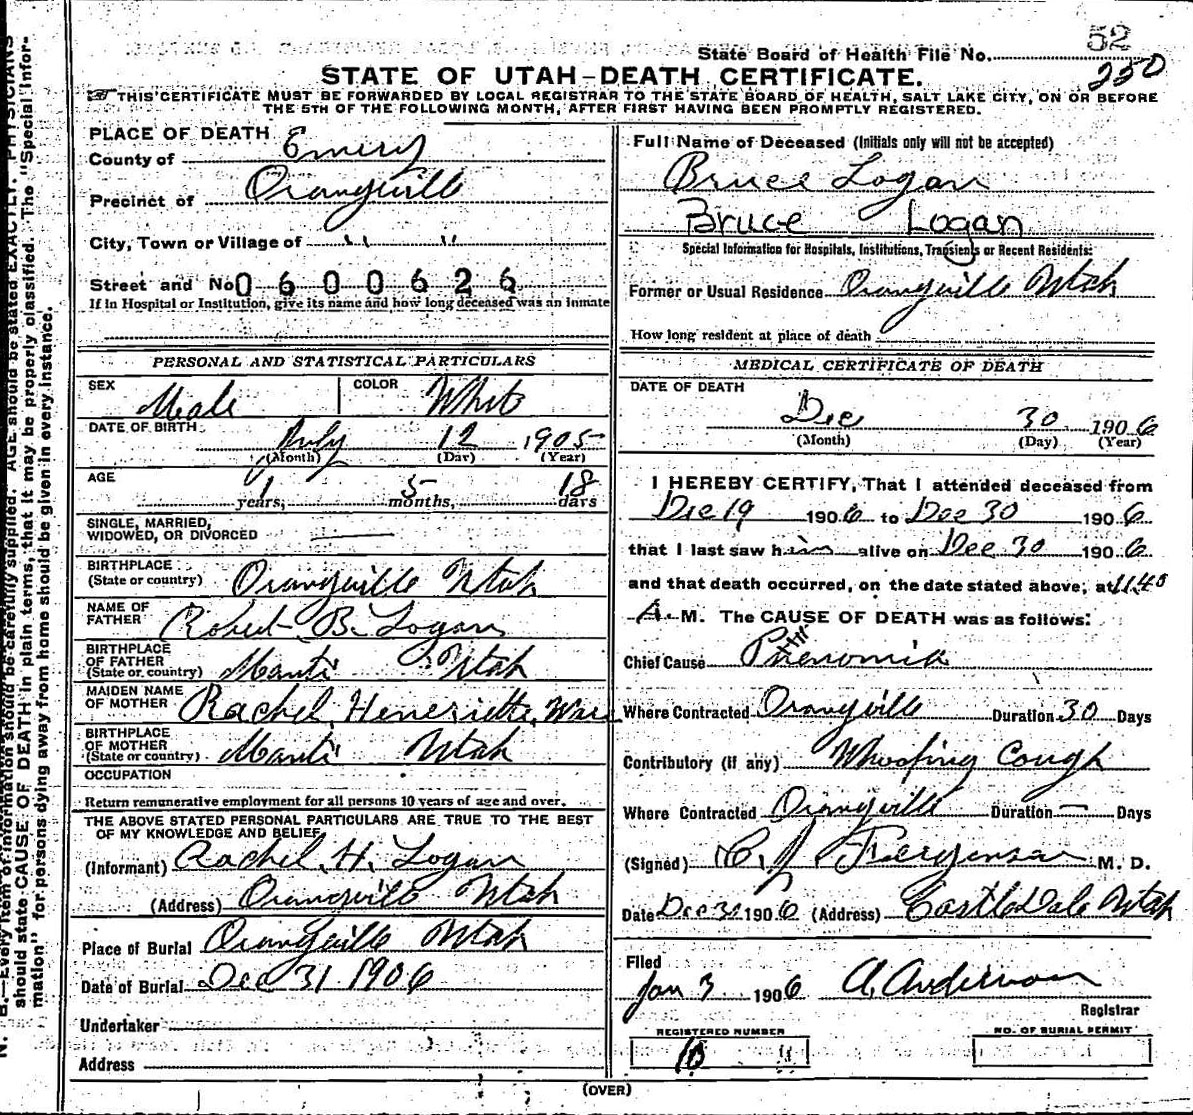 52
State Board of Health File No.
250
STATE OF UTAH-DEATH CERTIFICATE.
THIS CERTIFICATE MUST BE FORWARDED BY LOCAL REGISTRAR TO THE STATE BOARD OF HEALTH, SALT LAKE CITY, ON OR BEFORE
THE 5TH OF THE FOLLOWING MONTH, AFTER FIRST HAVING BEEN PROMPTLY REGISTERED.
PLACE OF DEATH
County of Emery
Precinct of Orangeville
City, Town or Village of " "
Street and No 0600626
If in Hospital or Institution, give its name and how long deceased was an inmate
PERSONAL AND STATISTICAL PARTICULARS
SEX Male COLOR White
DATE OF BIRTH July 12 1905
(Month) (Day) (Year)
AGE 1 years, 5 months, 18 days
SINGLE, MARRIED,
WIDOWED, OR DIVORCED
BIRTHPLACE
(State or country) Orangeville Utah
NAME OF
FATHER Robert B. Logan
BIRTHPLACE
OF FATHER
(State or country) Manti Utah
MAIDEN NAME
OF MOTHER Rachel Henriette
BIRTHPLACE
OF MOTHER
(State or country) Manti Utah
OCCUPATION
Return remunerative employment for all persons 10 years of age and over.
THE ABOVE STATED PERSONAL PARTICULARS ARE TRUE TO THE BEST
OF MY KNOWLEDGE AND BELIEF
(Informant) Rachel H. Logan
(Address) Orangeville Utah
Place of Burial Orangeville Utah
Date of Burial Dec 31 1906
Undertaker
Address
Full Name of Deceased (Initials only will not be accepted)
Bruce Logan
Bruce Logan
Special Information for Hospitals, Institutions, Transients or Recent Residents:
Former or Usual Residence Orangeville Utah
How long resident at place of death
MEDICAL CERTIFICATE OF DEATH
DATE OF DEATH
Dec 30 1906
(Month) (Day) (Year)
I HEREBY CERTIFY, That I attended deceased from
Dec 19 1906 to Dec 30 1906
that I last saw him alive on Dec 30 1906
and that death occurred, on the date stated above, at 11.40
A. M. The CAUSE OF DEATH was as follows:
Chief Cause
Where Contracted Orangeville Duration 30 Days
Contributory (if any) Whooping Cough
Where Contracted Orangeville Duration — Days
(Signed) M. D.
Date Dec 30 1906 (Address) Castle Dale Utah
Filed
Jan 3 1906 A. Anderson
Registrar
REGISTERED NUMBER NO. OF BURIAL PERMIT
10
(OVER)
N. B.—Every item of information should be carefully supplied. AGE should be stated EXACTLY. PHYSICIANS
should state CAUSE OF DEATH in plain terms, that it may be properly classified. The "Special Infor-
mation" for persons dying away from home should be given in every instance.